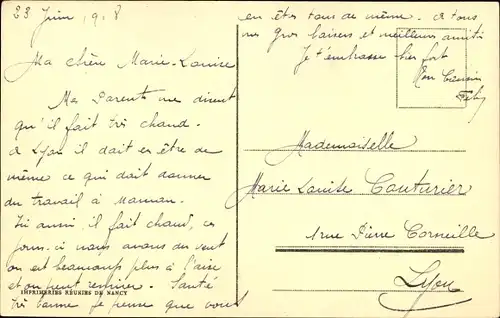 23 Juin 19 8
Ma chère Marie-Louise
Mes Parents me disent
qu'il fait très chaud.
A Lyon il doit en être de
même ce qui doit donner
du travail à Maman.
Ici aussi il fait chaud, ces
jours-ci nous avons du vent
on est beaucoup plus à l'aise
et on peut respirer. Santé
très bonne je pense que vous
en êtes tous de même. A tous
nos gros baisers et meilleures amitiés
Je t'embrasse bien fort
Ton Cousin
Mademoiselle
Marie Louise Couturier
1 rue Pierre Corneille
Lyon
IMPRIMERIES REUNIES DE NANCY